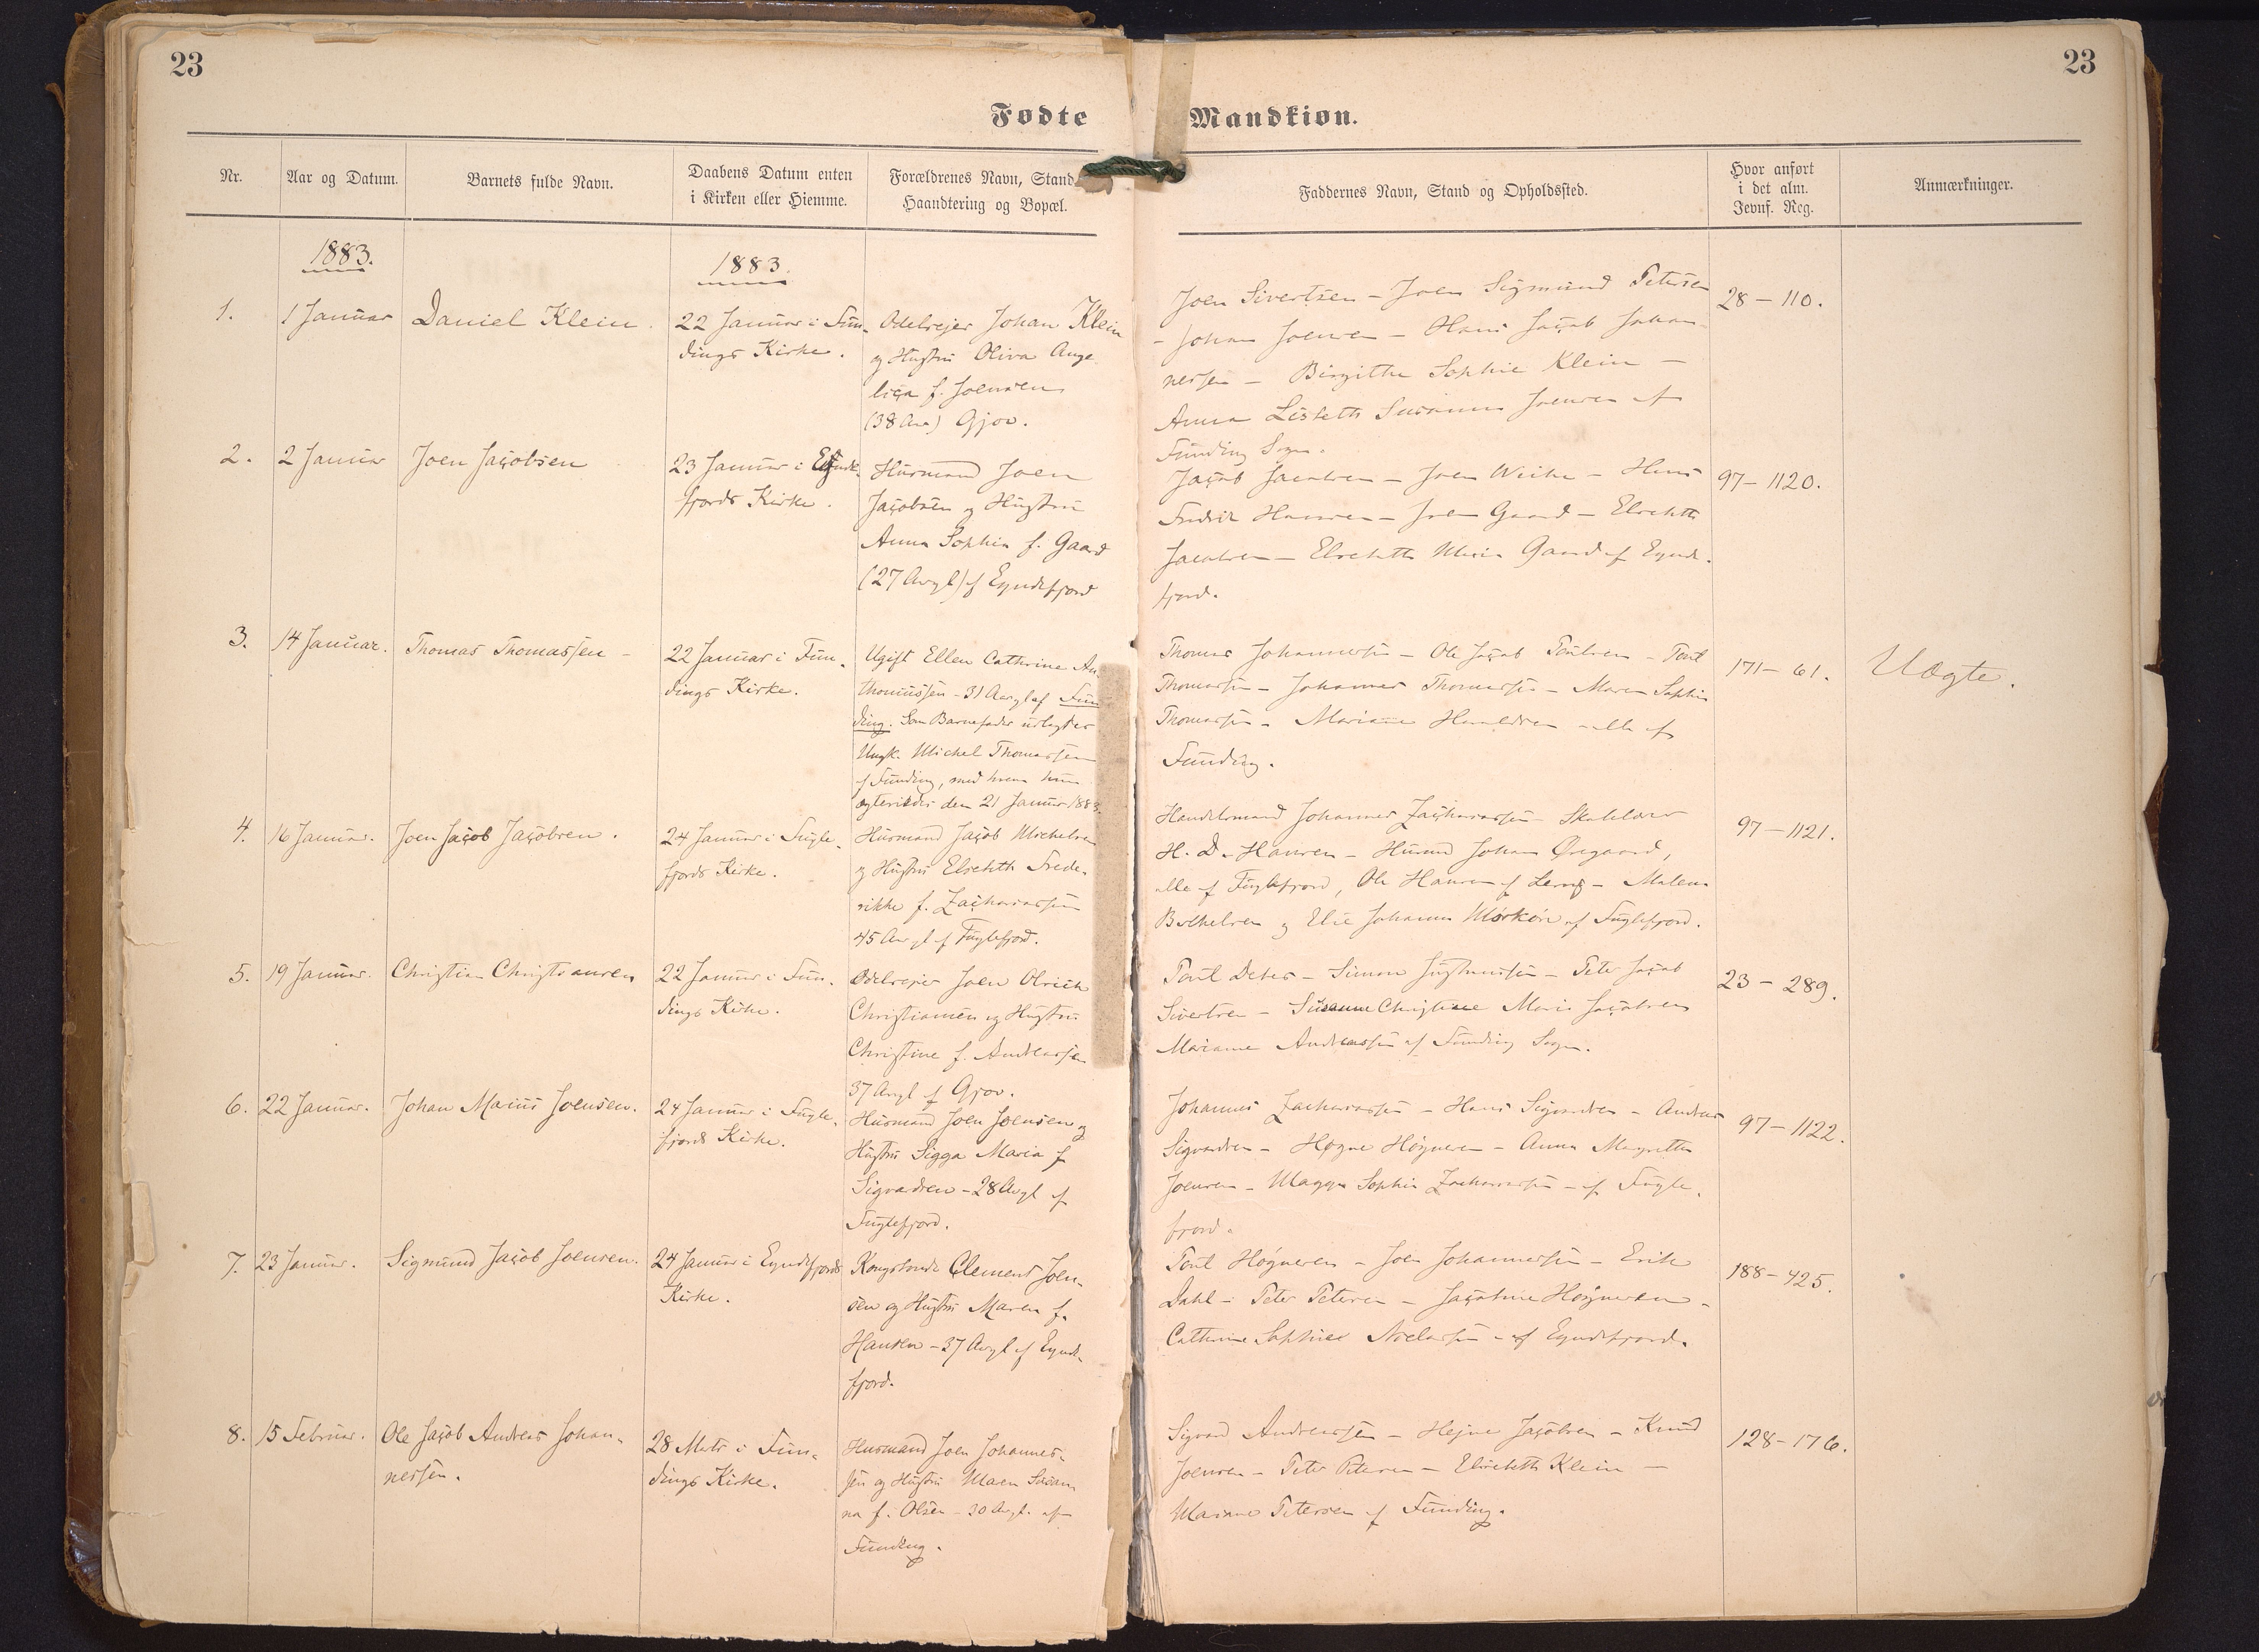 23
23
Fødte
Mandkiøn.
Nr.
Aar og Datum.
Barnets fulde Navn.
Daabens Datum enten
i Kirken eller Hiemme.
Forældrenes Navn, Stand,
Haandtering og Bopæl.
Faddernes Navn, Stand og Opholdssted.
Hvor anført
i det alm.
Jevnf. Reg.
Anmærkninger.
1883.
1883.
1.
1 Januar
Daniel Klein.
22 Januar i Fun-
dings Kirke.
Odelsejer Johan Klein
og Hustru Oliva Ange
lica f. Joensen
(38 Aar) Gjov.
Joen Sivertsen - Joen Sigmund Petersen
- Johan Joensen - Hans Jacob Johan-
nessen - Birgithe Sophie Klein -
Anna Lisbeth Susanna Joensen af
Funding Sogn.
28 - 110.
2.
2 Januar
Joen Jacobsen
23 Januar i Eynde-
fjords Kirke.
Husmand Joen
Jacobsen og Hustru
Anna Sophia f. Gaard
(27 Aargl) af Eyndefjord
Jacob Jacobsen - Joen Weihe - Hans
Fredrik Hansen - Joen Gaard - Elsebeth
Jacobsen - Elsebeth Maria Gaard af Eynde-
fjord.
97 - 1120.
3.
14 Januar.
Thomas Thomassen -
22 Januar i Fun-
dings Kirke.
Ugift Ellen Cathrine An
Thomassen - 31 Aargl af Fun
ding. Som Barnefader udlagdes
Ungk. Michel Thomassen
af Funding, med hvem hun
ægteviedes den 21 Januar 1883.
Thomas Johannessen - Ole Jacob Poulsen - Poul
Thomassen - Johannes Thomassen - Maren Sophia
Thomassen - Mariane Haraldsen alle af
Funding.
171 - 61.
Uægte.
4.
16 Januar.
Joen Jacob Jacobsen.
24 Januar i Fugle-
fjords Kirke.
Husmand Jacob Michelsen
og Hustru Elsebeth Frede-
rikke f. Zachariassen
45 Aar gl af Fuglefjord.
Handelsmand Johannes Zachariassen - Skolelærer
H. D. Hansen - Husmd Johan Øregaard,
alle af Fuglefjord, Ole Hansen af Lervig - Malene
Bothelsen og Else Johanna Mørkøre af Fuglefjord.
97 - 1121.
5.
19 Januar.
Christian Christiansen
22 Januar i Fun-
dings Kirke.
Odelsejer Joen Olrich
Christiansen og Hustru
Christine f. Andreassen
37 Aargl af Gjov.
Poul Debes - Simon Justinussen - Peter Jacob
Sivertsen - Susanne Christine Marie Jacobsen
Mariane Andreassen af Funding Sogn.
23 - 289.
6.
22 Januar.
Johan Marius Joensen.
24 Januar i Fugle-
fjords Kirke.
Husmand Joen Joensen og
Hustru Sigga Maria f.
Sigvardsen - 28 Aargl af
Fuglefjord.
Johannes Zachariassen - Hans Sigvardsen - Andreas
Sigvardsen - Høgne Høgnesen - Anna Margrethe
Joensen - Magga Sophie Zachariassen - af Fugle-
fjord.
97 - 1122.
7.
23 Januar.
Sigmund Jacob Joensen.
24 Januar i Eyndefjords
Kirke.
Kongsbonde Clement Joen-
sen og Hustru Maren f.
Hansen - 37 Aargl af Eynde-
fjord.
Poul Høgnesen - Joen Johannessen - Erik
Dahl - Peter Petersen - Jacobine Høgnesen -
Cathrine Sophie Niclassen - af Eyndefjord.
188 - 425.
8.
15 Februar.
Ole Jacob Andreas Johan-
nessen.
28 Marts i Fun-
dings Kirke.
Husmand Joen Johannes-
sen og Hustru Maren Susan
na f. Olsen - 30 Aargl. af
Funding.
Sigvard Andreassen - Hejne Jacobsen - Knud
Joensen - Peter Petersen - Elsebeth Klein -
Mariane Petersen af Funding.
128 - 176.